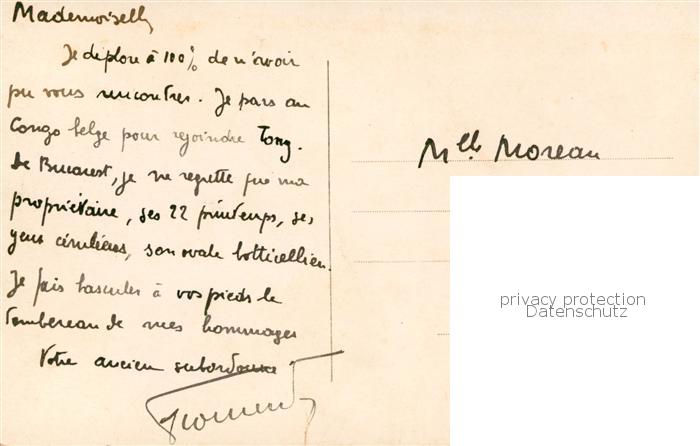 Mademoiselle
Je déplore à 100% de n'avoir
pu vous rencontrer. Je pars au
Congo belge pour rejoindre Tony.
De Bucarest, je ne regrette que ma
propriétaire, ses 22 printemps, ses
yeux céruléens, son ovale botticellien.
Je fais basculer à vos pieds le
tombereau de mes hommages
Votre ancien subordonné
Froment
Mlle Moreau
privacy protection
Datenschutz